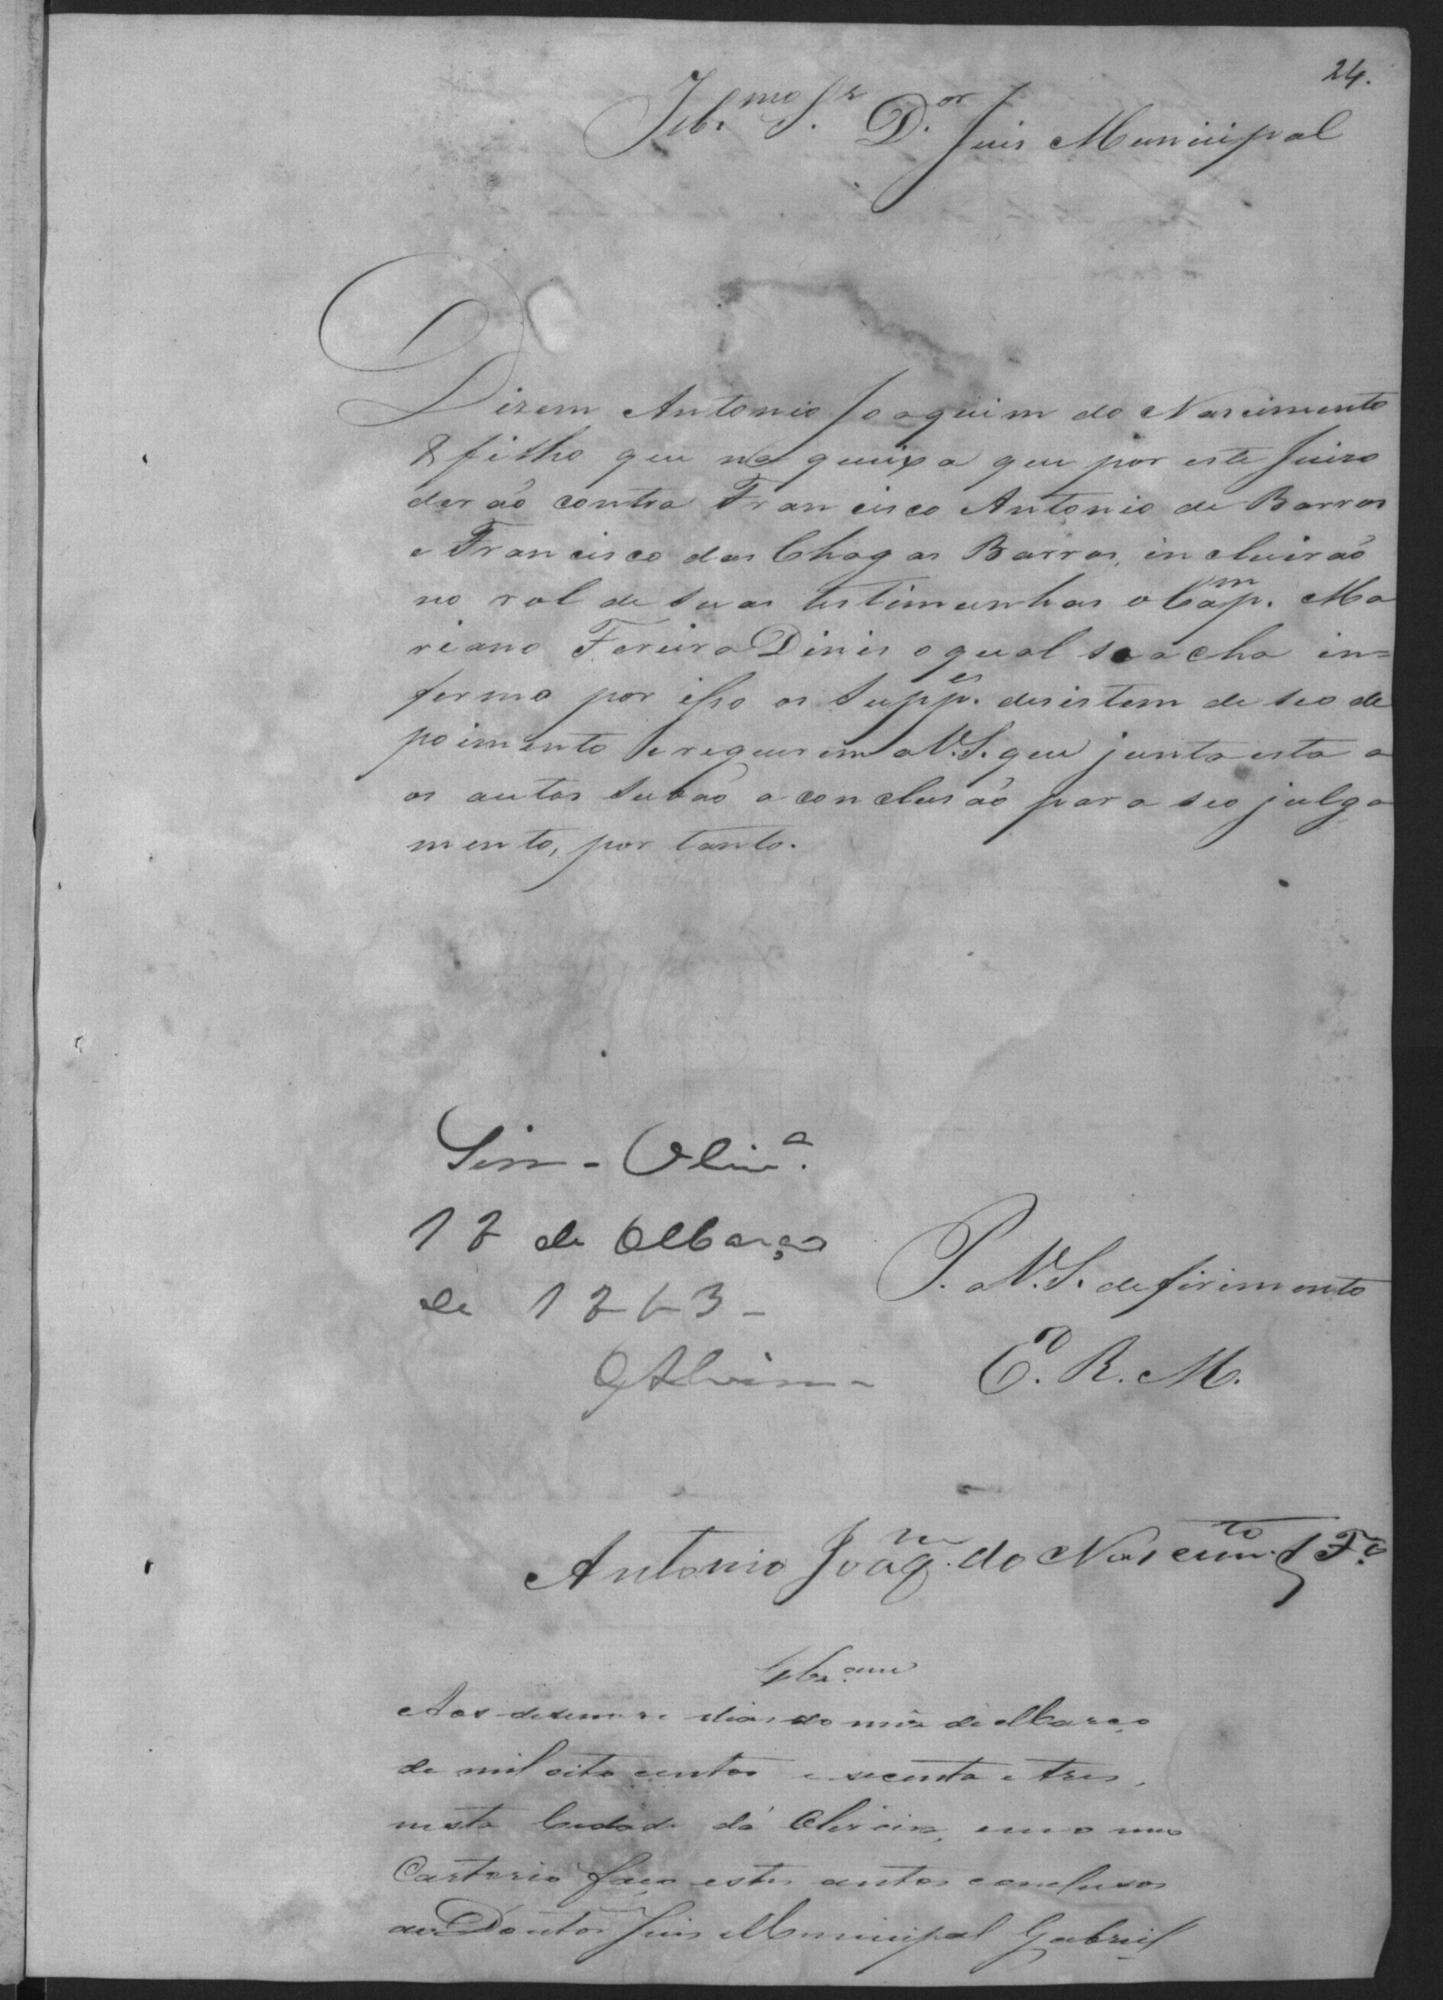 24.
Ill.mo S.r D.or Juis Municipal
Dizem Antonio Joaquim do Nascimento
& filho que na queixa que por este Juizo
derão contra Francisco Antonio de Barros
e Francisco das Chagas Barros, incluirão
no rol de suas testimunhas o Cap.m Ma
riano Fereira Dinis o qual se acha in=
fermo por isso os Supp.es desistem de seo de
poimento e requerem a V.S. que junta esta a
os autos subão a conclusão para seo julga
mento, por tanto.
Sim - Oliv.a
18 de Março
de 1863 -
P. a V.S. defirimento
E. R. M.
Antonio Joaq.m do Nascim.to & F.o
Aos desenove dias do mês de Março
de mil oito centos e secenta e tres,
nesta Cidade da Oliveira, em o meu
Cartorio faço estes autos conclusos
ao Doutor Juis Municipal Gabriel